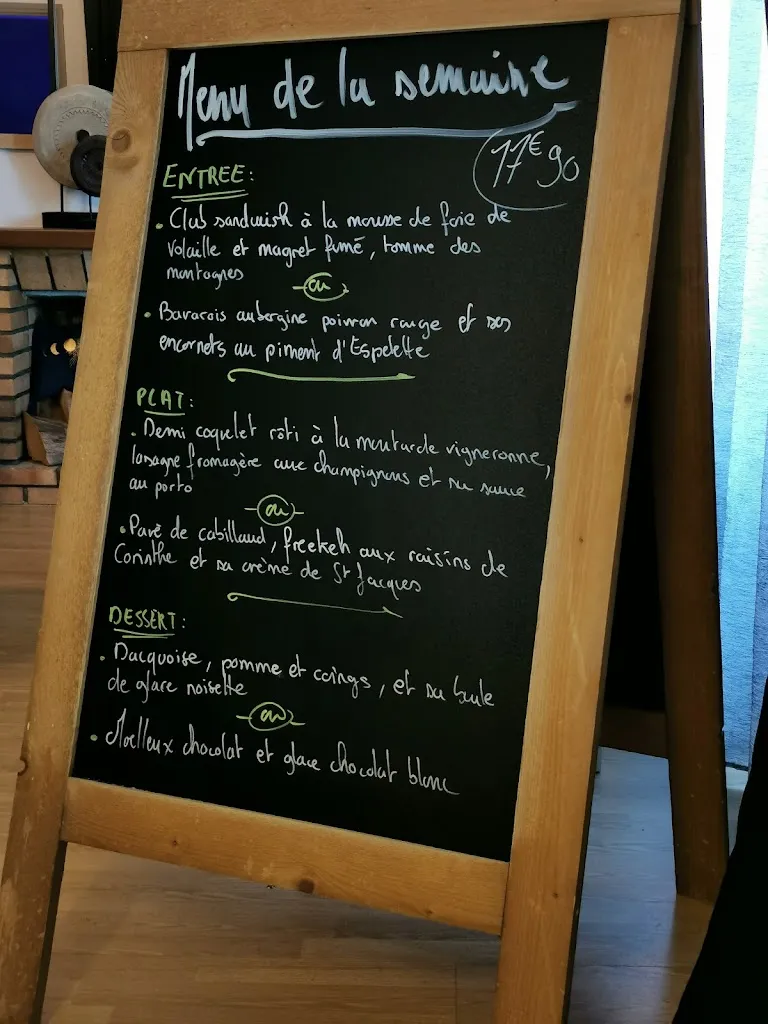 Menu de la semaine
17€90
ENTREE:
• Club sandwish à la mousse de foie de
volaille et magret fumé, tomme des
montagnes
ou
• Bavarois aubergine poivron rouge et ses
encornets au piment d'Espelette
PLAT:
• Demi coquelet rôti à la moutarde vigneronne,
lasagne fromagère aux champignons et sa sauce
au porto
ou
• Pavé de cabillaud, freekeh aux raisins de
Corinthe et sa crème de St Jacques
DESSERT:
• Dacquoise, pomme et coings, et sa boule
de glace noisette
ou
• Moelleux chocolat et glace chocolat blanc